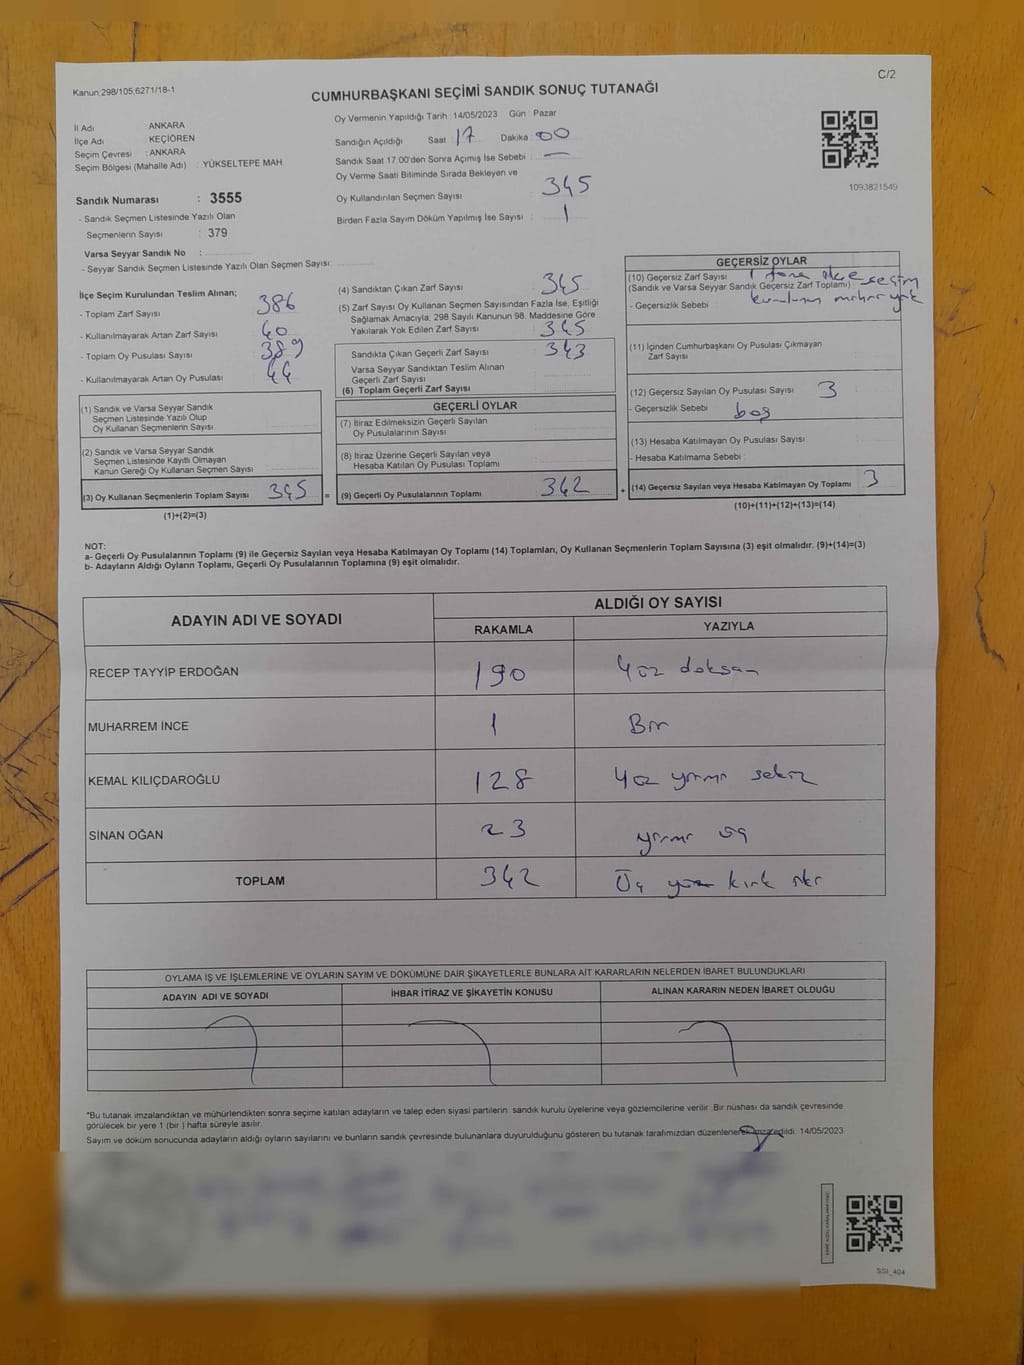 C/2
Kanun:298/105,6271/18-1
CUMHURBAŞKANI SEÇİMİ SANDIK SONUÇ TUTANAĞI
İl Adı : ANKARA
İlçe Adı : KEÇİÖREN
Seçim Çevresi : ANKARA
Seçim Bölgesi (Mahalle Adı) : YÜKSELTEPE MAH.
Sandık Numarası : 3555
- Sandık Seçmen Listesinde Yazılı Olan
Seçmenlerin Sayısı : 379
Varsa Seyyar Sandık No :
- Seyyar Sandık Seçmen Listesinde Yazılı Olan Seçmen Sayısı:
Oy Vermenin Yapıldığı Tarih : 14/05/2023 Gün : Pazar
Sandığın Açıldığı Saat 17 Dakika 00
Sandık Saat 17.00'den Sonra Açımış İse Sebebi : —
Oy Verme Saati Bitiminde Sırada Bekleyen ve
Oy Kullandırılan Seçmen Sayısı : 345
Birden Fazla Sayım Döküm Yapılmış İse Sayısı : 1
1093821549
İlçe Seçim Kurulundan Teslim Alınan;
- Toplam Zarf Sayısı : 386
- Kullanılmayarak Artan Zarf Sayısı : 40
- Toplam Oy Pusulası Sayısı : 389
- Kullanılmayarak Artan Oy Pusulası : 44
(1) Sandık ve Varsa Seyyar Sandık
Seçmen Listesinde Yazılı Olup
Oy Kullanan Seçmenlerin Sayısı :
(2) Sandık ve Varsa Seyyar Sandık
Seçmen Listesinde Kayıtlı Olmayan
Kanun Gereği Oy Kullanan Seçmen Sayısı :
(3) Oy Kullanan Seçmenlerin Toplam Sayısı : 345
(1)+(2)=(3)
(4) Sandıktan Çıkan Zarf Sayısı : 345
(5) Zarf Sayısı Oy Kullanan Seçmen Sayısından Fazla İse, Eşitliği
Sağlamak Amacıyla, 298 Sayılı Kanunun 98. Maddesine Göre
Yakılarak Yok Edilen Zarf Sayısı : 345
Sandıkta Çıkan Geçerli Zarf Sayısı : 343
Varsa Seyyar Sandıktan Teslim Alınan
Geçerli Zarf Sayısı
(6) Toplam Geçerli Zarf Sayısı :
GEÇERLİ OYLAR
(7) İtiraz Edilmeksizin Geçerli Sayılan
Oy Pusulalarının Sayısı :
(8) İtiraz Üzerine Geçerli Sayılan veya
Hesaba Katılan Oy Pusulası Toplamı :
= (9) Geçerli Oy Pusulalarının Toplamı : 342 +
GEÇERSİZ OYLAR
(10) Geçersiz Zarf Sayısı : 1 tane ilçe seçim
(Sandık ve Varsa Seyyar Sandık Geçersiz Zarf Toplamı) kurulunun mührü yok
- Geçersizlik Sebebi :
(11) İçinden Cumhurbaşkanı Oy Pusulası Çıkmayan
Zarf Sayısı
(12) Geçersiz Sayılan Oy Pusulası Sayısı : 3
- Geçersizlik Sebebi : boş
(13) Hesaba Katılmayan Oy Pusulası Sayısı :
- Hesaba Katılmama Sebebi :
(14) Geçersiz Sayılan veya Hesaba Katılmayan Oy Toplamı : 3
(10)+(11)+(12)+(13)=(14)
NOT:
a- Geçerli Oy Pusulalarının Toplamı (9) ile Geçersiz Sayılan veya Hesaba Katılmayan Oy Toplamı (14) Toplamları, Oy Kullanan Seçmenlerin Toplam Sayısına (3) eşit olmalıdır. (9)+(14)=(3)
b- Adayların Aldığı Oyların Toplamı, Geçerli Oy Pusulalarının Toplamına (9) eşit olmalıdır.
ADAYIN ADI VE SOYADI ALDIĞI OY SAYISI
RAKAMLA YAZIYLA
RECEP TAYYİP ERDOĞAN 190 Yüz doksan
MUHARREM İNCE 1 Bir
KEMAL KILIÇDAROĞLU 128 Yüz yirmi sekiz
SİNAN OĞAN 23 yirmi üç
TOPLAM 342 Üç yüz kırk iki
OYLAMA İŞ VE İŞLEMLERİNE VE OYLARIN SAYIM VE DÖKÜMÜNE DAİR ŞİKAYETLERLE BUNLARA AİT KARARLARIN NELERDEN İBARET BULUNDUKLARI
ADAYIN ADI VE SOYADI İHBAR İTİRAZ VE ŞİKAYETİN KONUSU ALINAN KARARIN NEDEN İBARET OLDUĞU
*Bu tutanak imzalandıktan ve mühürlendikten sonra seçime katılan adayların ve talep eden siyasi partilerin sandık kurulu üyelerine veya gözlemcilerine verilir. Bir nüshası da sandık çevresinde
görülecek bir yere 1 (bir ) hafta süreyle asılır.
Sayım ve döküm sonucunda adayların aldığı oyların sayılarını ve bunların sandık çevresinde bulunanlara duyurulduğunu gösteren bu tutanak tarafımızdan düzenlenerek imza edildi. 14/05/2023
SSI_404